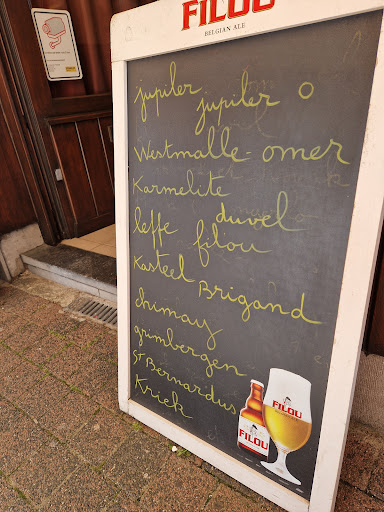 FILOU
BELGIAN ALE
jupiler jupiler 0
Westmalle - omer
Karmelite
leffe duvel
filou
Kasteel Brigand
chimay
grimbergen
St Bernardus
Kriek
FILOU
FILOU